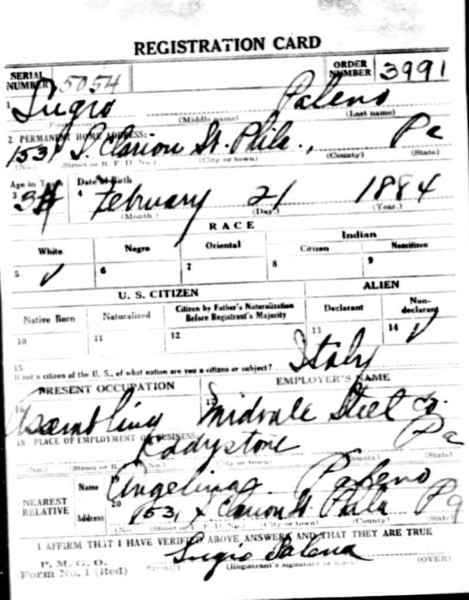 REGISTRATION CARD
SERIAL NUMBER 5054 ORDER NUMBER 3991
1 Lugio Paleno
(Middle name) (Last name)
2 PERMANENT HOME ADDRESS:
1531 S. Clarion St. Phila., Pa
(No.) (Street or R. F. D. No.) (City or town) (County) (State)
Age in Years Date of Birth
3 34 4 February 21 1884
(Month.) (Day.) (Year.)
RACE
White Negro Oriental Indian
Citizen Noncitizen
5 ✓ 6 7 8 9
U. S. CITIZEN ALIEN
Native Born Naturalized Citizen by Father's Naturalization Before Registrant's Majority Declarant Non-declarant
10 11 12 13 14 ✓
15 If not a citizen of the U. S., of what nation are you a citizen or subject? Italy
PRESENT OCCUPATION EMPLOYER'S NAME
16 Assembling 17 Midvale Steel Co.
18 PLACE OF EMPLOYMENT OR BUSINESS:
Eddystone Pa
(No.) (Street or R. F. D. No.) (City or town) (County) (State)
NEAREST RELATIVE Name 19 Angelina Paleno
Address 20 1531 S Clarion St Phila Pa
(No.) (Street or R. F. D. No.) (City or town) (County) (State)
I AFFIRM THAT I HAVE VERIFIED ABOVE ANSWERS AND THAT THEY ARE TRUE
P. M. G. O.
Form No. 1 (Red) (Registrant's signature or mark) (OVER)